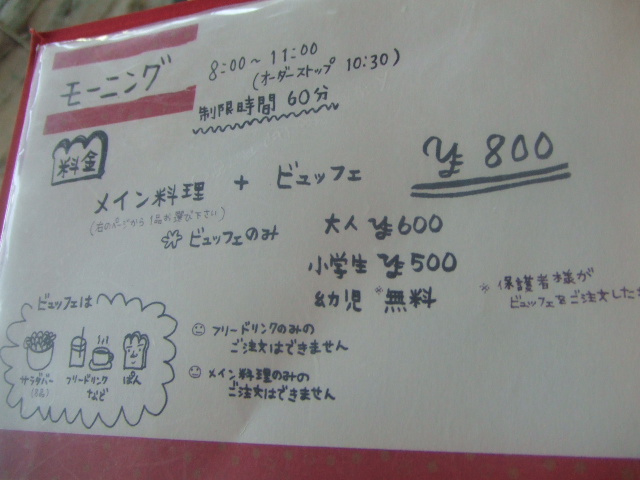 モーニング
8:00〜11:00
(オーダーストップ 10:30)
制限時間 60分
料金
メイン料理 + ビュッフェ ¥800
(右のページから1品お選び下さい)
ビュッフェのみ 大人 ¥600
小学生 ¥500
幼児 ※無料
※保護者様が
ビュッフェをご注文した
ビュッフェは
サラダバー フリードリンク ぱん
など
フリードリンクのみの
ご注文はできません
メイン料理のみの
ご注文はできません